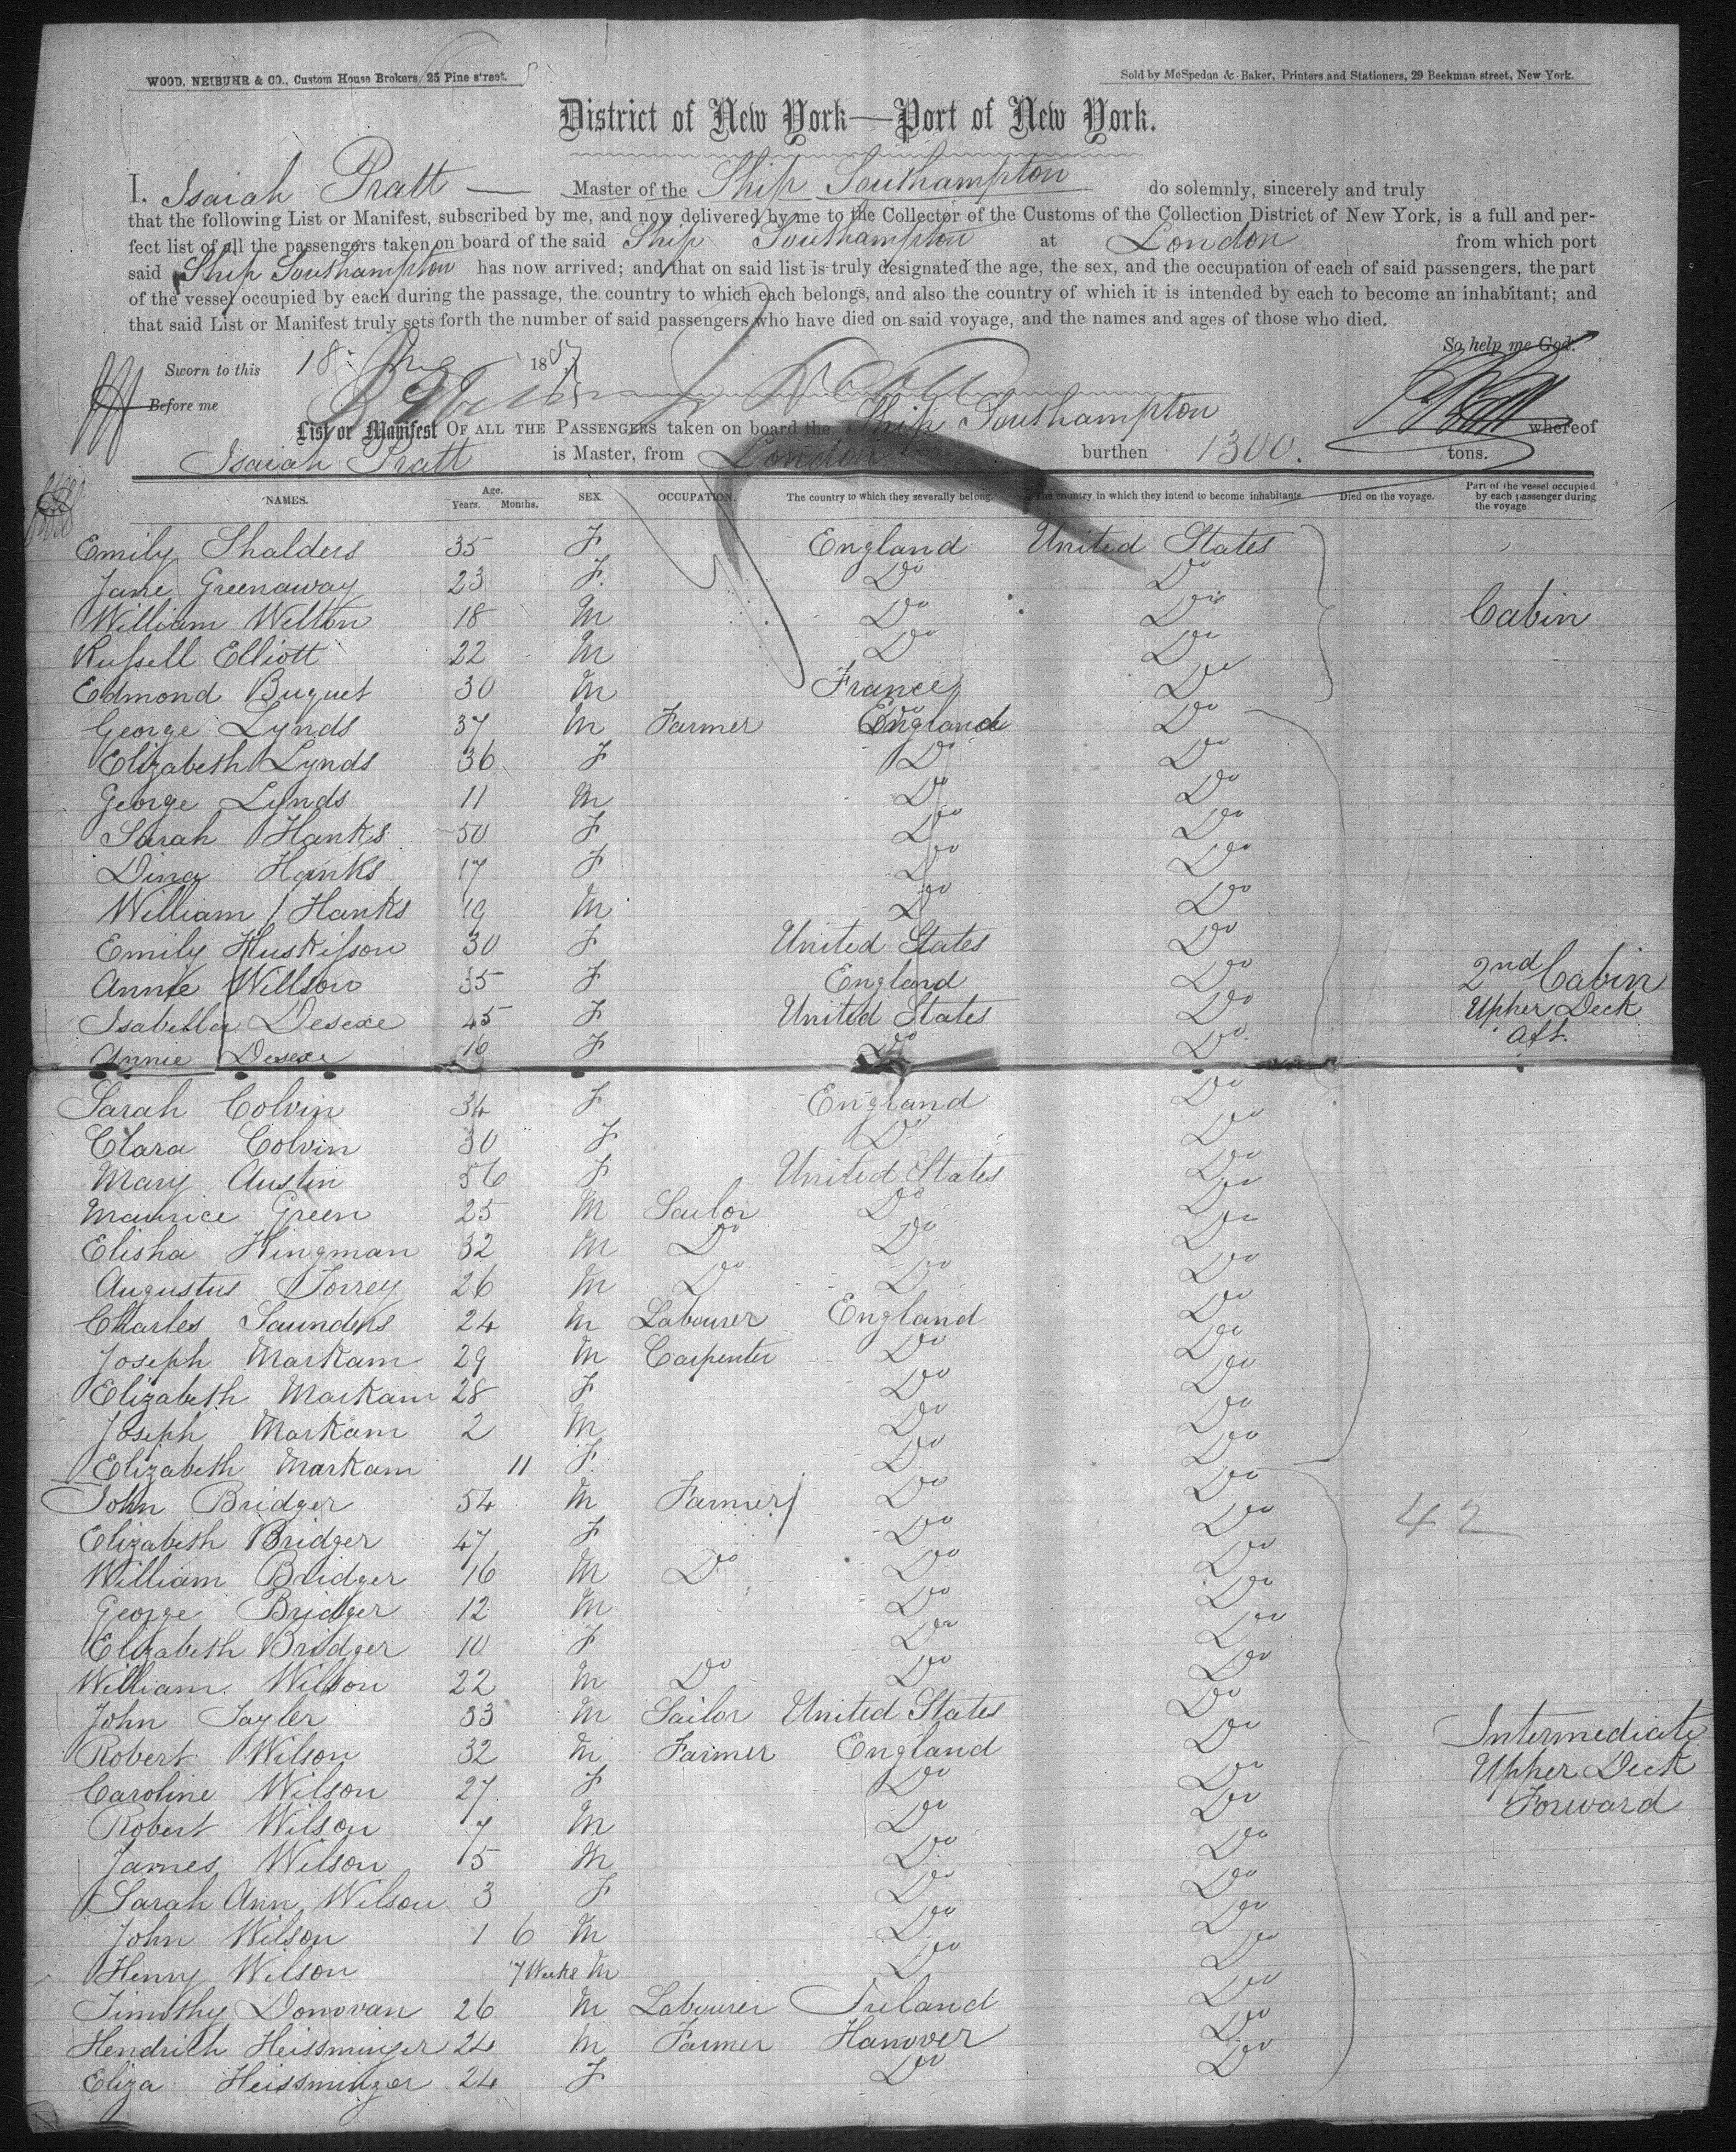 WOOD, NEIBUHR & CO., Custom House Brokers, 25 Pine street.
Sold by McSpedon & Baker, Printers and Stationers, 29 Beekman street, New York.
District of New York—Port of New York.
I, Isaiah Pratt — Master of the Ship Southampton do solemnly, sincerely and truly
that the following List or Manifest, subscribed by me, and now delivered by me to the Collector of the Customs of the Collection District of New York, is a full and per-
fect list of all the passengers taken on board of the said Ship Southampton at London from which port
said Ship Southampton has now arrived; and that on said list is truly designated the age, the sex, and the occupation of each of said passengers, the part
of the vessel occupied by each during the passage, the country to which each belongs, and also the country of which it is intended by each to become an inhabitant; and
that said List or Manifest truly sets forth the number of said passengers who have died on said voyage, and the names and ages of those who died.
So help me God.
Sworn to this 18 Aug 185
Before me
List or Manifest OF ALL THE PASSENGERS taken on board the Ship Southampton whereof
Isaiah Pratt is Master, from London burthen 1300. tons.
NAMES. Age. Years. Months. SEX. OCCUPATION. The country to which they severally belong. The country in which they intend to become inhabitants. Died on the voyage. Part of the vessel occupied by each passenger during the voyage
Emily Shalders 35 F England United States
Jane Greenaway 23 F. Do Do
William Welton 18 M Do Do Cabin
Russell Elliott 22 M Do Do
Edmond Buquet 30 M France Do
George Lynds 37 M Farmer England Do
Elizabeth Lynds 36 F Do Do
George Lynds 11 M Do Do
Sarah Hanks 50 F Do Do
Dina Hanks 17 F Do Do
William Hanks 19 M Do Do
Emily Huskisson 30 F United States Do
Annie Willson 35 F England Do 2nd Cabin
Isabella Desexe 45 F United States Do Upper Deck
Annie Desexe 16 F Do Do Aft.
Sarah Colvin 34 F England Do
Clara Colvin 30 F Do Do
Mary Austin 56 F United States Do
Maurice Green 25 M Sailor Do Do
Elisha Hingman 32 M Do Do Do
Augustus Torrey 26 M Do Do Do
Charles Saunders 24 M Labourer England Do
Joseph Markam 29 M Carpenter Do Do
Elizabeth Markam 28 F Do Do
Joseph Markam 2 M Do Do
Elizabeth Markam 11 F. Do Do
John Bridger 54 M Farmer Do Do 42
Elizabeth Bridger 47 F Do Do
William Bridger 16 M Do Do Do
George Bridger 12 M Do Do
Elizabeth Bridger 10 F Do Do
William Wilson 22 M Do Do Do
John Tayler 33 M Sailor United States Do Intermediate
Robert Wilson 32 M Farmer England Do Upper Deck
Caroline Wilson 27 F Do Do Forward
Robert Wilson 7 M Do Do
James Wilson 5 M Do Do
Sarah Ann Wilson 3 F Do Do
John Wilson 1 6 M Do Do
Henry Wilson 7 Weeks M Do Do
Timothy Donovan 26 M Labourer Ireland Do
Hendrich Heissminger 24 M Farmer Hanover Do
Eliza Heissminger 24 F Do Do